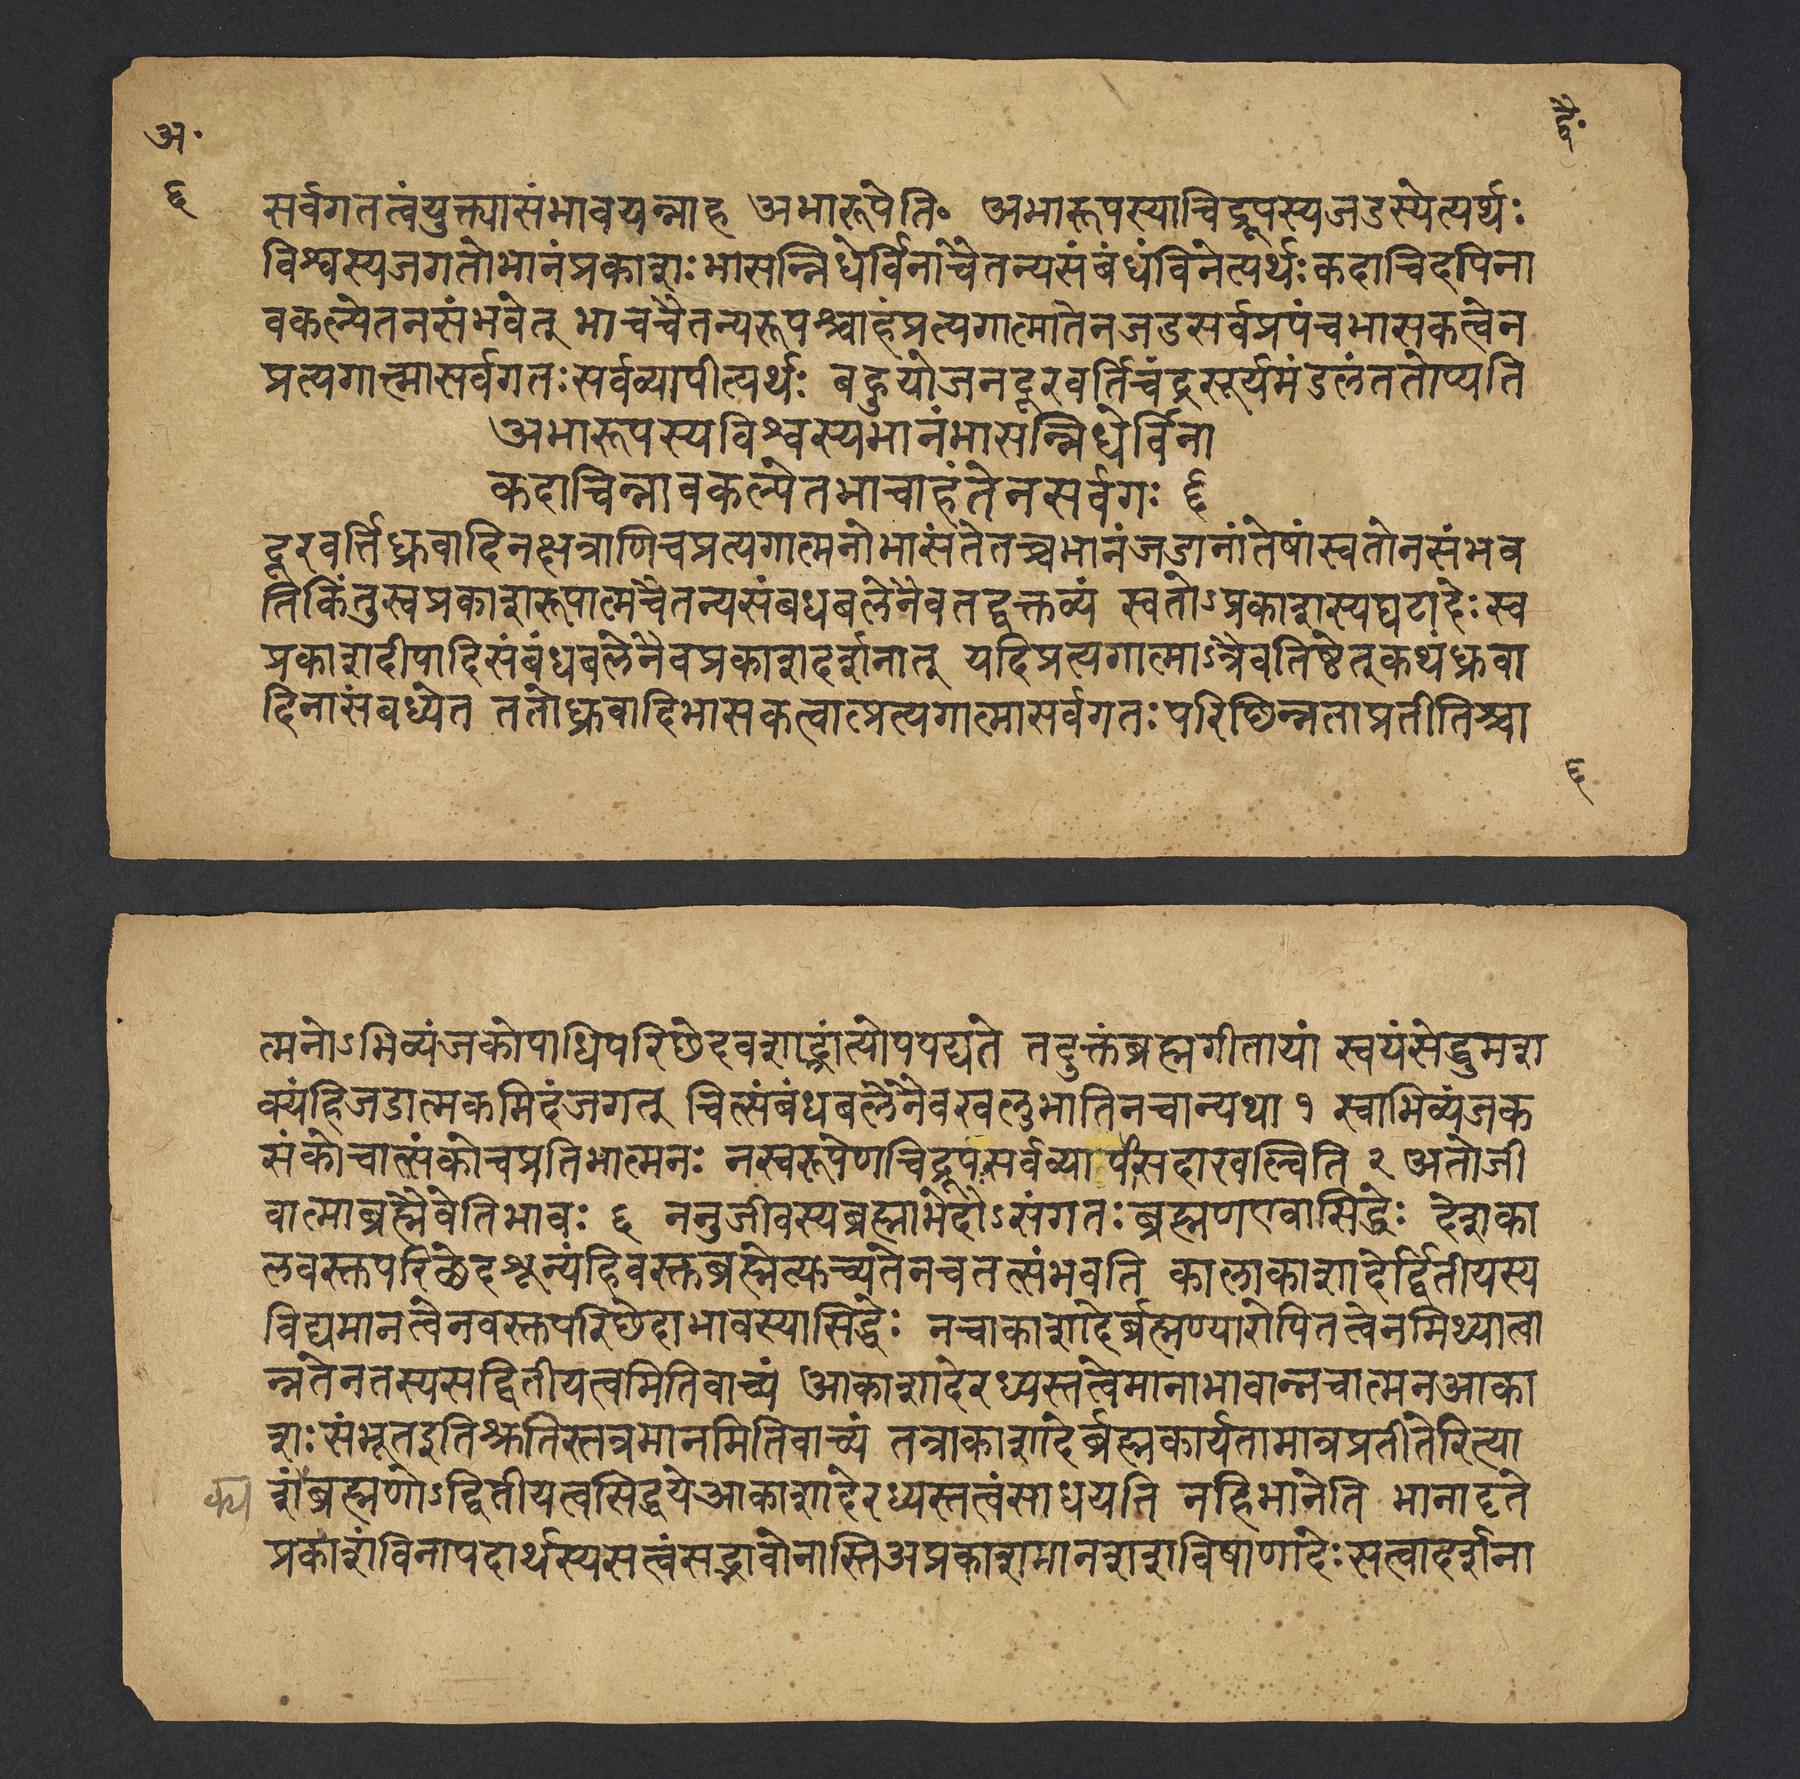 अ॰
द्वै॰
६
सर्वगतत्वंयुक्त्यासंभावयन्नाह अभारूपेति॰ अभारूपस्याचिद्रूपस्यजडस्येत्यर्थः
विश्वस्यजगतोभानंप्रकाशः भासन्निधेर्विनाचैतन्यसंबंधंविनेत्यर्थः कदाचिदपिना
वकल्प्येतनसंभवेत् भाचचैतन्यरूपश्चाहंप्रत्यगात्मातेनजडसर्वप्रपंचभासकत्वेन
प्रत्यगात्मासर्वगतः सर्वव्यापीत्यर्थः बहुयोजनदूरवर्तिचंद्रसूर्यमंडलंततोप्यति
अभारूपस्यविश्वस्यभानंभासन्निधेर्विना
कदाचिन्नावकल्प्येतभाचाहंतेनसर्वगः ६
दूरवर्त्तिध्रुवादिनक्षत्राणिचप्रत्यगात्मनोभासंतेतच्चभानंजडानांतेषांस्वतोनसंभव
तिकिंतुस्वप्रकाशरूपात्मचैतन्यसंबधबलेनैवतद्वक्तव्यं स्वतोऽप्रकाशस्यघटादेः स्व
प्रकाशदीपादिसंबंधबलेनैवप्रकाशदर्शनात् यदिप्रत्यगात्माऽत्रैवतिष्ठेत्कथंध्रुवा
दिनासंबध्येत ततोध्रुवादिभासकत्वात्प्रत्यगात्मासर्वगतः परिछिन्नताप्रतीतिश्चा
६
त्मनोऽभिव्यंजकोपाधिपरिछेदवशाद्भ्रांत्योपपद्यते तदुक्तंब्रह्मगीतायां स्वयंसेद्धुमश
क्यंहिजडात्मकमिदंजगत् चित्संबंधबलेनैवखलुभातिनचान्यथा १ स्वाभिव्यंजक
संकोचात्संकोचप्रतिभात्मनः नस्वरूपेणचिद्रूपंसर्वव्यापिसदाखल्विति २ अतोजी
वात्माब्रह्मैवेतिभावः ६ ननुजीवस्यब्रह्माभेदोऽसंगतः ब्रह्मणएवासिद्धेः देशका
लवस्तुपरिछेदशून्यंहिवस्तुब्रह्मेत्युच्यतेनचतत्संभवति कालाकाशादेर्द्वितीयस्य
विद्यमानत्वेनवस्तुपरिछेदाभावस्यासिद्धेः नचाकाशादेर्ब्रह्मण्यारोपितत्वेनमिथ्यात्वा
न्नतेनतस्यसद्वितीयत्वमितिवाच्यं आकाशादेरध्यस्तत्वेमानाभावान्नचात्मनआका
शः संभूतइतिश्रुतिस्तत्रमानमितिवाच्यं तत्राकाशादेर्ब्रह्मकार्यतामात्रप्रतीतेरित्या
शंब्रह्मणोऽद्वितीयत्वसिद्धयेआकाशादेरध्यस्तत्वंसाधयति नहिभानेति भानादृते
प्रकाशंविनापदार्थस्यसत्वंसद्भावोनास्तिअप्रकाशमानशशविषाणादेः सत्वादर्शना